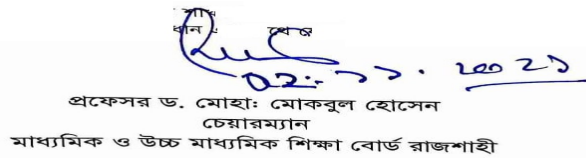 ০২.১১.২০২১
প্রফেসর ড. মোহাঃ মোকবুল হোসেন
চেয়ারম্যান
মাধ্যমিক ও উচ্চ মাধ্যমিক শিক্ষা বোর্ড রাজশাহী